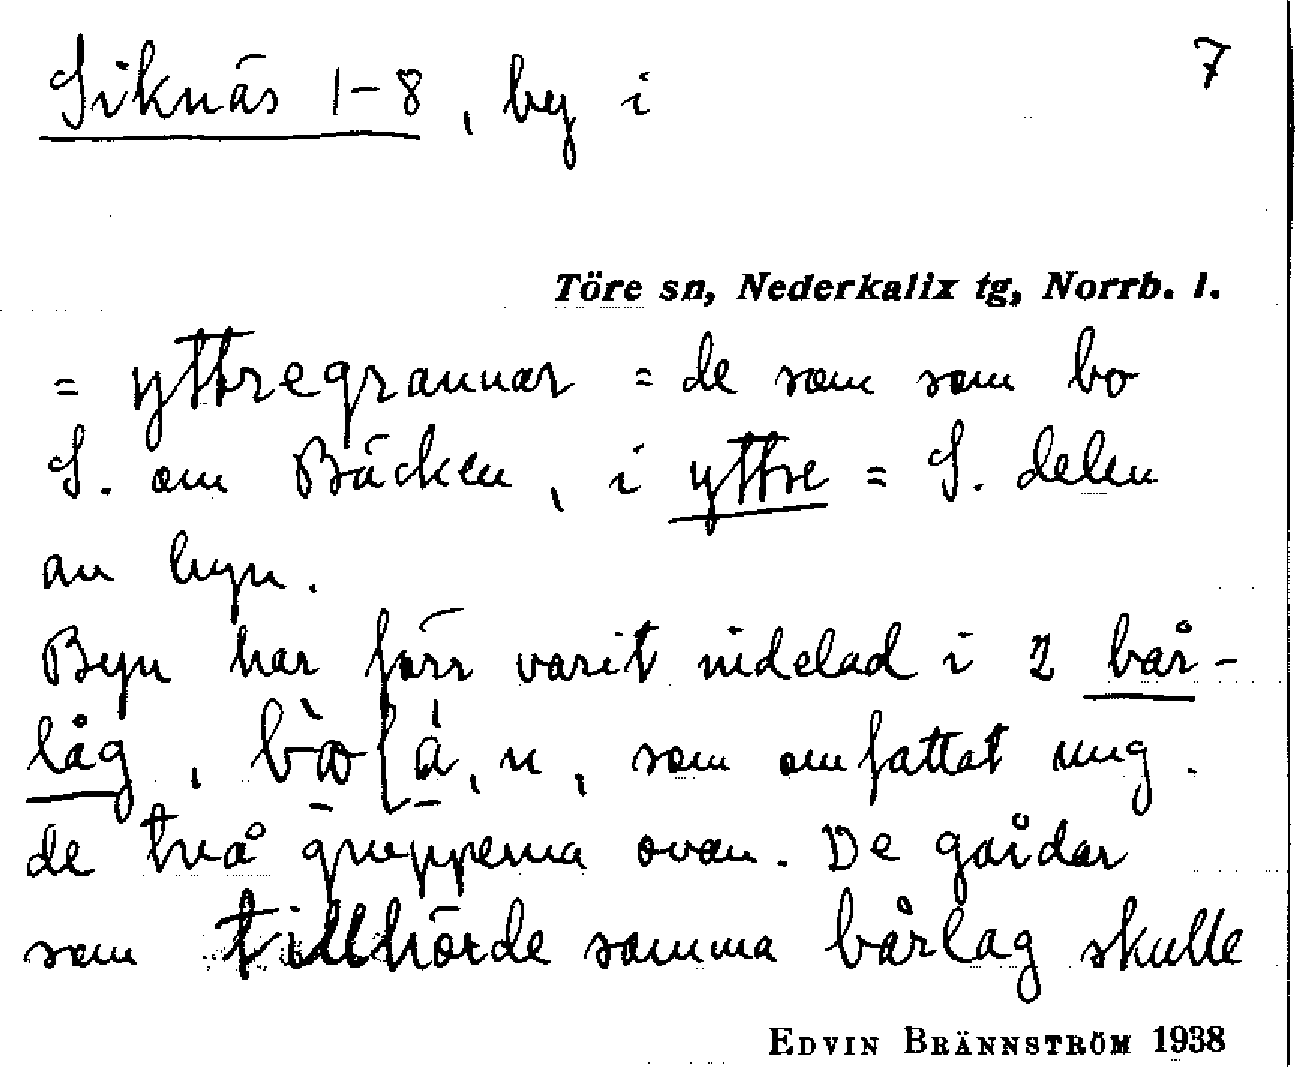 Siknäs 1-8, by i
7
Töre sn, Nederkalix tg, Norrb. l.
= yttregrannar = de som som bo
S. om Bäcken, i yttre = S. delen
av byn.
Byn har förr varit indelad i 2 bår-
låg, som omfattat ung.
de två grupperna ovan. De gårdar
som tillhörde samma bårlag skulle
EDVIN BRÄNNSTRÖM 1938